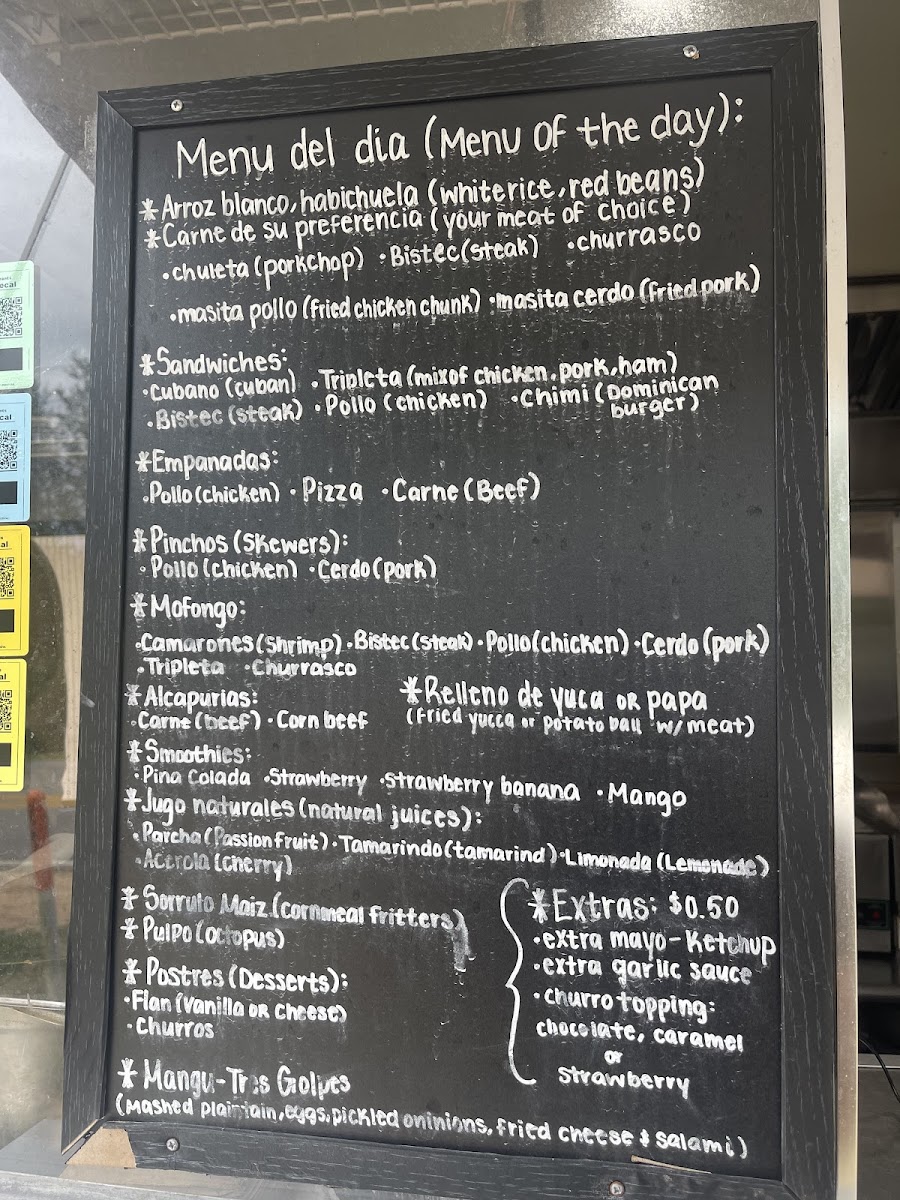 Menu del dia (Menu of the day):
* Arroz blanco, habichuela (white rice, red beans)
* Carne de su preferencia (your meat of choice)
• chuleta (porkchop) • Bistec (steak) • churrasco
• masita pollo (fried chicken chunk) • masita cerdo (fried pork)
* Sandwiches:
• Cubano (cuban) • Tripleta (mix of chicken, pork, ham)
• Bistec (steak) • Pollo (chicken) • Chimi (Dominican burger)
* Empanadas:
• Pollo (chicken) • Pizza • Carne (Beef)
* Pinchos (Skewers):
• Pollo (chicken) • Cerdo (pork)
* Mofongo:
• Camarones (Shrimp) • Bistec (steak) • Pollo (chicken) • Cerdo (pork)
• Tripleta • Churrasco
* Alcapurias:
• Carne (beef) • Corn beef
* Relleno de yuca or papa
(fried yucca or potato ball w/ meat)
* Smoothies:
• Pina Colada • Strawberry • strawberry banana • Mango
* Jugo naturales (natural juices):
• Parcha (Passion fruit) • Tamarindo (tamarind) • Limonada (Lemonade)
• Acerola (cherry)
* Sorrulo Maiz (cornmeal fritters)
* Pulpo (octopus)
* Postres (Desserts):
• Flan (Vanilla or cheese)
• Churros
* Extras: $0.50
• extra mayo-Ketchup
• extra garlic sauce
• churro topping:
chocolate, caramel
or
strawberry
* Mangu-Tres Golpes
(Mashed plaintain, eggs, pickled oninions, fried cheese & salami)